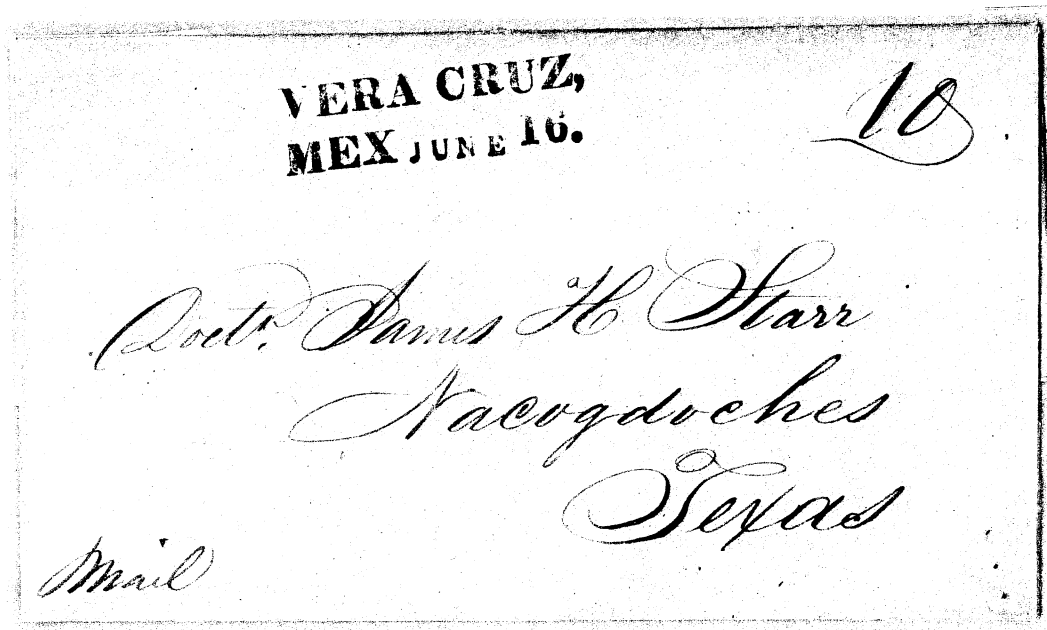 VERA CRUZ,
MEX JUNE 16.
10
Doctr. James H Starr
Nacogdoches
Texas
Mail